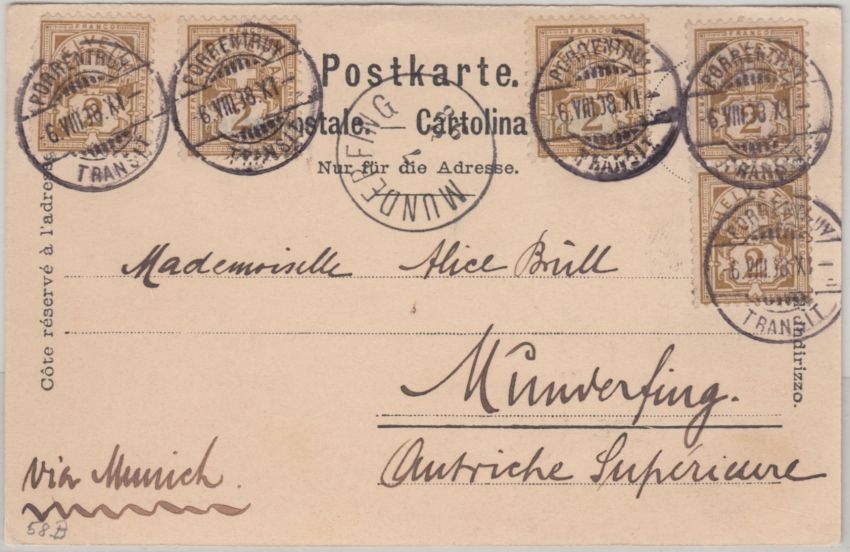 FRANCO FRANCO FRANCO FRANCO
HELVETIA
2 2 2 2
PORRENTRUY PORRENTRUY PORRENTRUY PORRENTRUY
6.VIII.98.XI 6.VIII.98.XI 6.VIII.98.XI 6.VIII.98.XI
TRANSIT TRANSIT TRANSIT TRANSIT
Postkarte.
postale. Cartolina
Nur für die Adresse.
MUNDERFING
HELVETIA
PORRENTRUY
2
6.VIII.98.XI
TRANSIT
Côte réservé à l'adresse
indirizzo.
Mademoiselle Alice Brüll
Munderfing.
Autriche Supérieure
via Munich.
58.